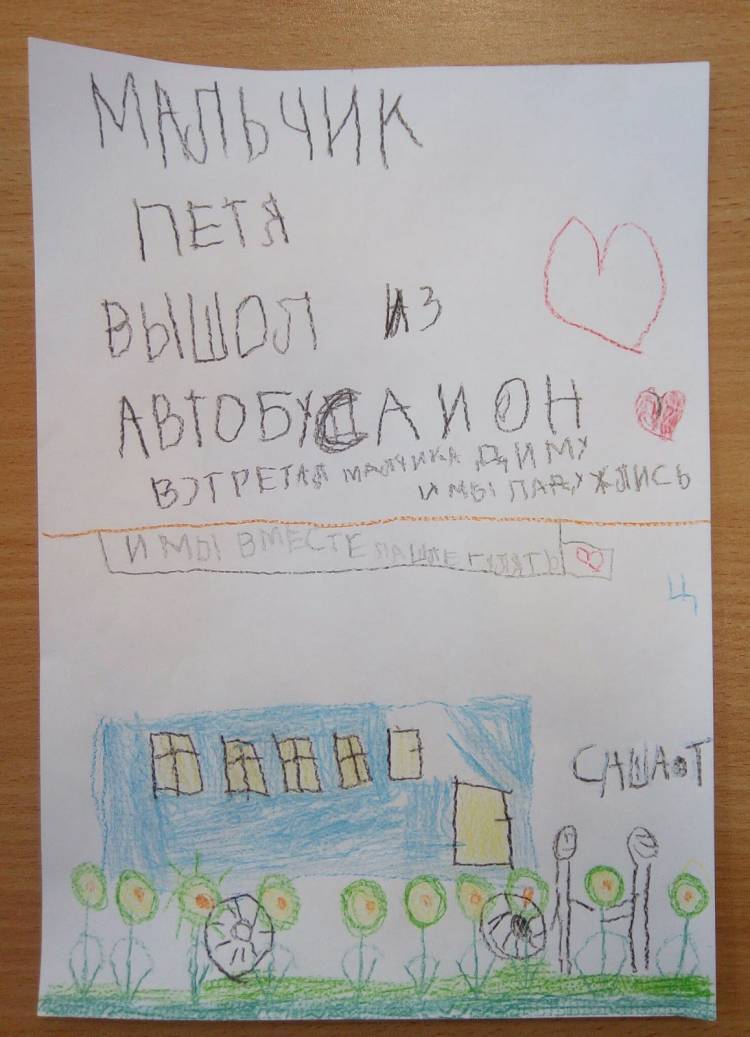 МАЛЬЧИК
ПЕТЯ
ВЫШОЛ ИЗ
АВТОБУСА И ОН
ВЭТРЕТАЛ МАЛЧИКА ДИМУ
И МЫ ПАДУЖЛИСЬ
И МЫ ВМЕСТЕ ПАШЛЕ ГУЛЯТЬ
Ц
САША Т